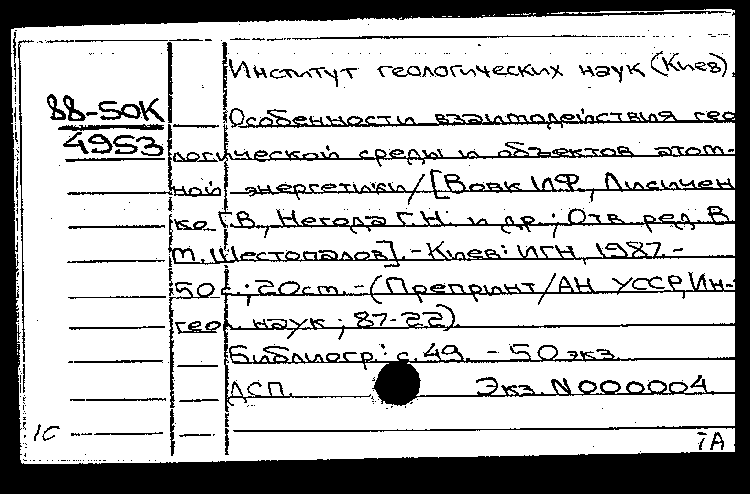 Институт геологических наук (Киев).
88-50К
4953
Особенности взаимодействия гео
логической среды и объектов атом-
ной энергетики/[Вовк И.Ф., Лисичен
ко Г.В., Негода Г.Н. и др.; Отв. ред. В.
М. Шестопалов]. - Киев: ИГН, 1987. -
50 с.; 20 см. - (Препринт/АН УССР, Ин-т
геол. наук; 87-22).
Библиогр.: с. 49. - 50 экз.
ДСП. Экз. N 000004
1С
7А